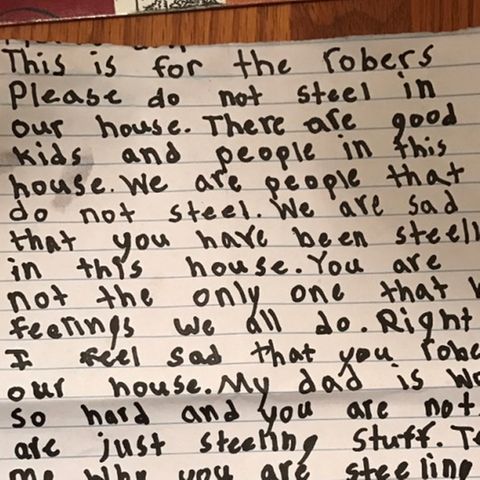 This is for the robers
Please do not steel in
our house. There are good
kids and people in this
house. We are people that
do not steel. We are sad
that you have been
in this house. You are
not the only one that
feerings we all do. Right
I feel sad that you
our house. My dad is
so hard and you are not
are just steeling stuff.
me Why you are steeling